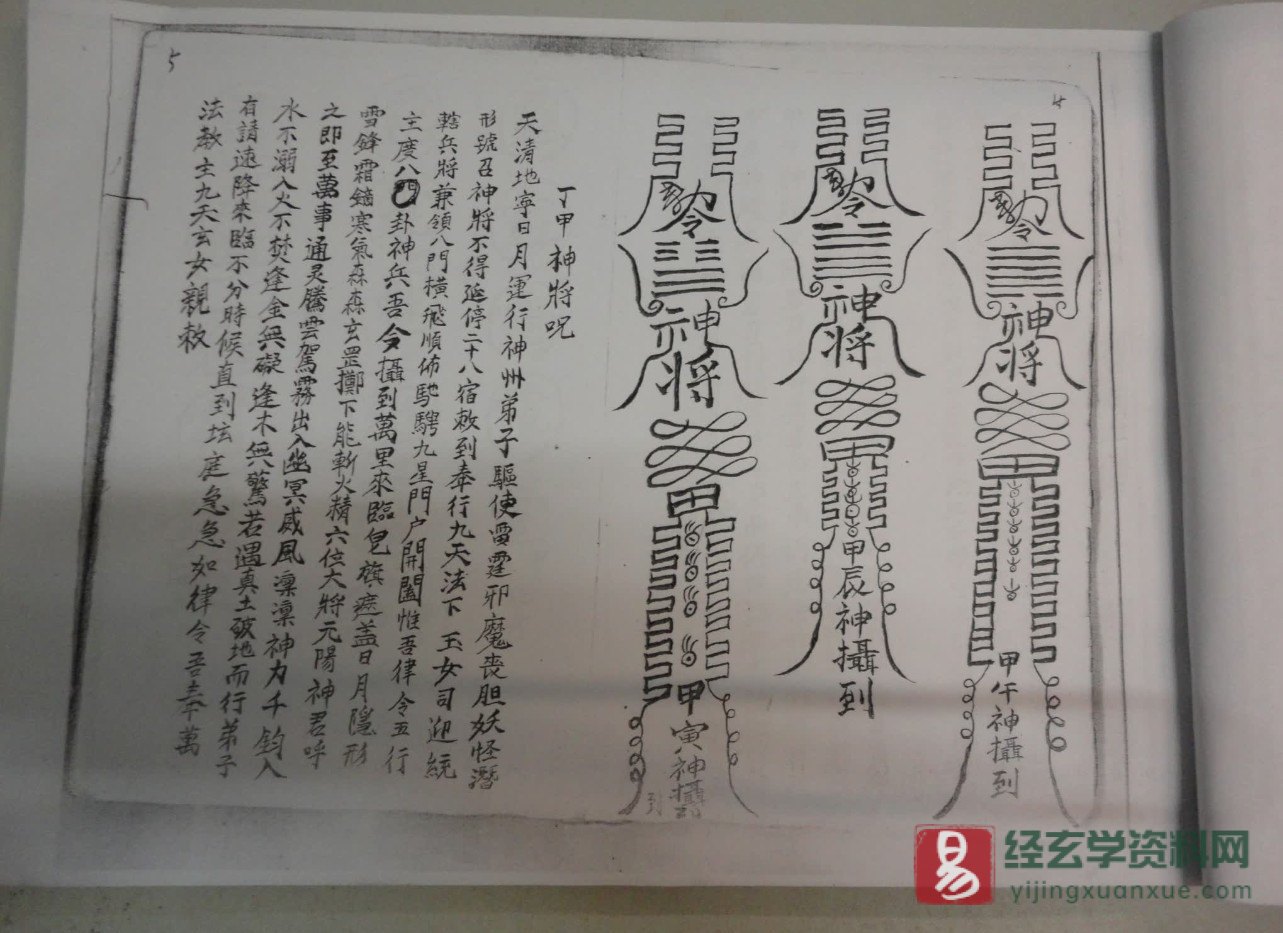 4
勅令
神將
甲午神攝到
勅令
神將
甲辰神攝到
勅令
神將
甲寅神攝到
5
丁甲神將咒
天清地寧日月運行神州弟子驅使雷霆邪魔喪胆妖怪潛
形號召神將不得延停二十八宿敕到奉行九天法下玉女司迎統
轄兵將兼領八門橫飛順佈馳騁九星門户開闔惟吾律令五行
主度八卦神兵吾令攝到萬里來臨皂旗遮盖日月隱形
雪鋒霜鏑寒氣森森玄罡擲下能斬火精六位大將元陽神君呼
之即至萬事通灵騰雲駕霧出入幽冥威風凜凜神力千鈞入
水不溺入火不焚逢金無礙逢木無驚若遇真土破地而行弟子
有請速降來臨不分時候直到坛庭急急如律令吾奉萬
法教主九天玄女親敕
易
经玄学资料网
yijingxuanxue.com